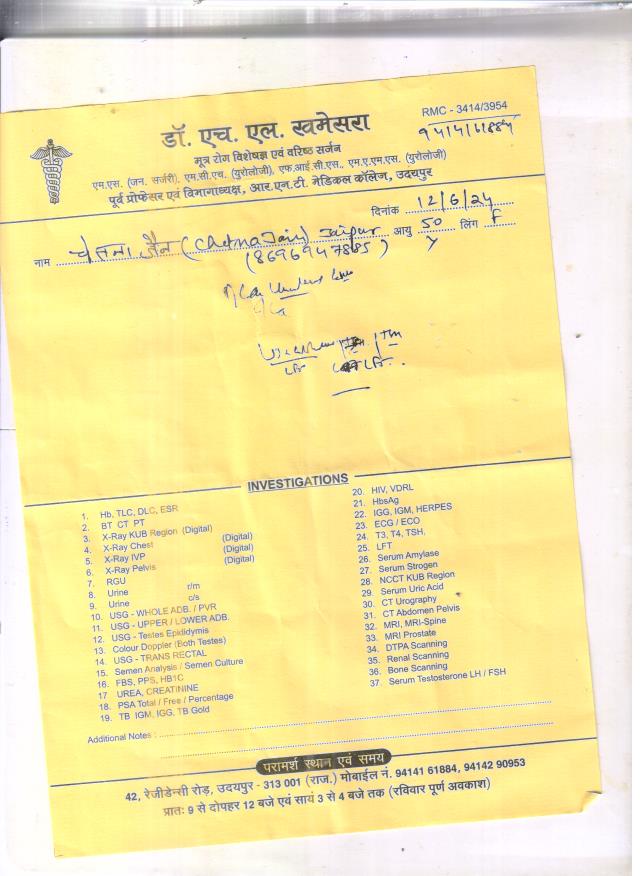 डॉ. एच. एल. खमेसरा
RMC - 3414/3954
9414161884
मूत्र रोग विशेषज्ञ एवं वरिष्ठ सर्जन
एम.एस. (जन. सर्जरी), एम.सी.एच. (युरोलोजी), एफ.आई.सी.एस., एम.ए.एम.एस. (युरोलोजी)
पूर्व प्रोफेसर एवं विभागाध्यक्ष, आर.एन.टी. मेडिकल कॉलेज, उदयपुर
दिनांक 12/6/24
नाम चेतना जैन (Chetna Jain) Jaipur आयु 50 लिंग F
(8696947885) Y
INVESTIGATIONS
1. Hb, TLC, DLC, ESR
2. BT CT PT
3. X-Ray KUB Region (Digital)
4. X-Ray Chest (Digital)
5. X-Ray IVP (Digital)
6. X-Ray Pelvis (Digital)
7. RGU
8. Urine r/m
9. Urine c/s
10. USG - WHOLE ADB. / PVR
11. USG - UPPER / LOWER ADB.
12. USG - Testes Epididymis
13. Colour Doppler (Both Testes)
14. USG - TRANS RECTAL
15. Semen Analysis / Semen Culture
16. FBS, PPS, HB1C
17 UREA, CREATININE
18. PSA Total / Free / Percentage
19. TB IGM, IGG, TB Gold
20. HIV, VDRL
21. HbsAg
22. IGG, IGM, HERPES
23. ECG / ECO
24. T3, T4, TSH,
25. LFT
26. Serum Amylase
27. Serum Strogen
28. NCCT KUB Region
29. Serum Uric Acid
30. CT Urography
31. CT Abdomen Pelvis
32. MRI, MRI-Spine
33. MRI Prostate
34. DTPA Scanning
35. Renal Scanning
36. Bone Scanning
37. Serum Testosterone LH / FSH
Additional Notes :
परामर्श स्थान एवं समय
42, रेजीडेन्सी रोड़, उदयपुर - 313 001 (राज.) मोबाईल नं. 94141 61884, 94142 90953
प्रातः 9 से दोपहर 12 बजे एवं सायं 3 से 4 बजे तक (रविवार पूर्ण अवकाश)